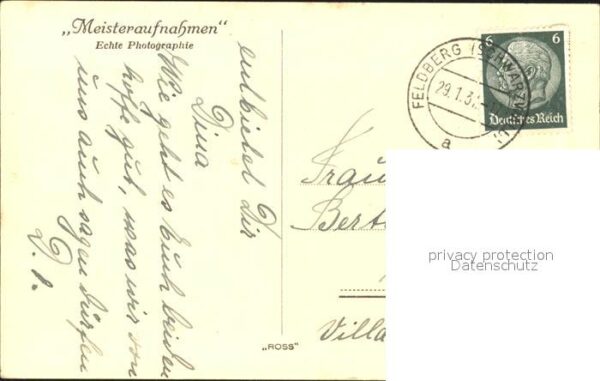 „Meisteraufnahmen“
Echte Photographie
entbietet Dir
Dina
Wie geht es Euch beiden
hoffe gut, was wir von
uns auch sagen dürfen
D. O.
FELDBERG (SCHWARZW
29.1.3
a
6 6
Deutsches Reich
Frau
Bert
Villa
privacy protection
Datenschutz
„ROSS“